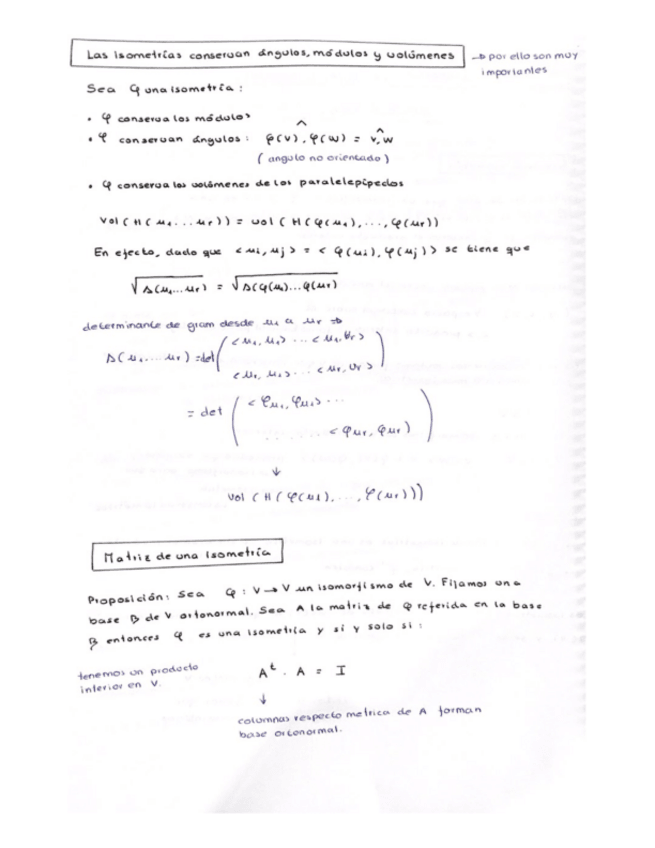 Las isometrías conservan ángulos, módulos y volúmenes → por ello son muy
importantes
Sea φ una isometría:
• φ conserva los módulos
• φ conservan ángulos: φ(v), φ(w) = v, w
(angulo no orientado)
• φ conserva los volúmenes de los paralelepípedos
Vol (H(u₁...ur)) = vol (H(φ(u₁),...,φ(ur))
En efecto, dado que <ui, uj> = <φ(ui), φ(uj)> se tiene que
√Δ(u₁...ur) = √Δ(φ(u₁)...φ(ur)
determinante de gram desde u₁ a ur ⇒
Δ(u₁....ur) = det ( <u₁, u₁> ... <u₁, ur>
<ur, u₁> ... <ur, ur> )
= det ( <φu₁, φu₁> ...
........ <φur, φur) )
↓
vol (H(φ(u₁),...,φ(ur)))
Matriz de una isometría
Proposición: Sea φ: V → V un isomorfismo de V. Fijamos una
base B de V ortonormal. Sea A la matriz de φ referida en la base
B entonces φ es una isometría y si y solo si:
tenemos un producto
interior en V.
Aᵗ · A = I
↓
columnas respecto metrica de A forman
base ortonormal.